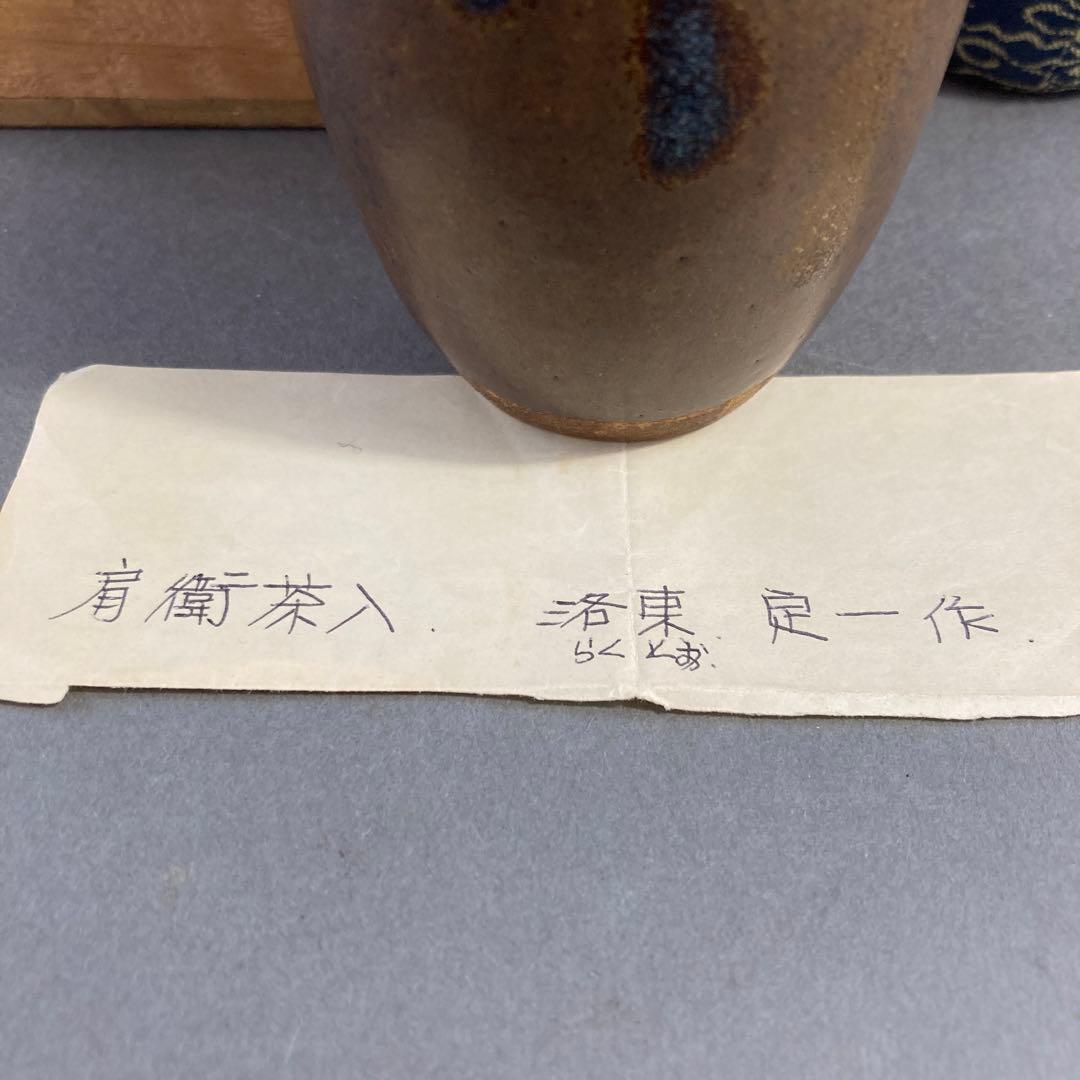 肩衝茶入. 洛東. 定一作.
らくとお.